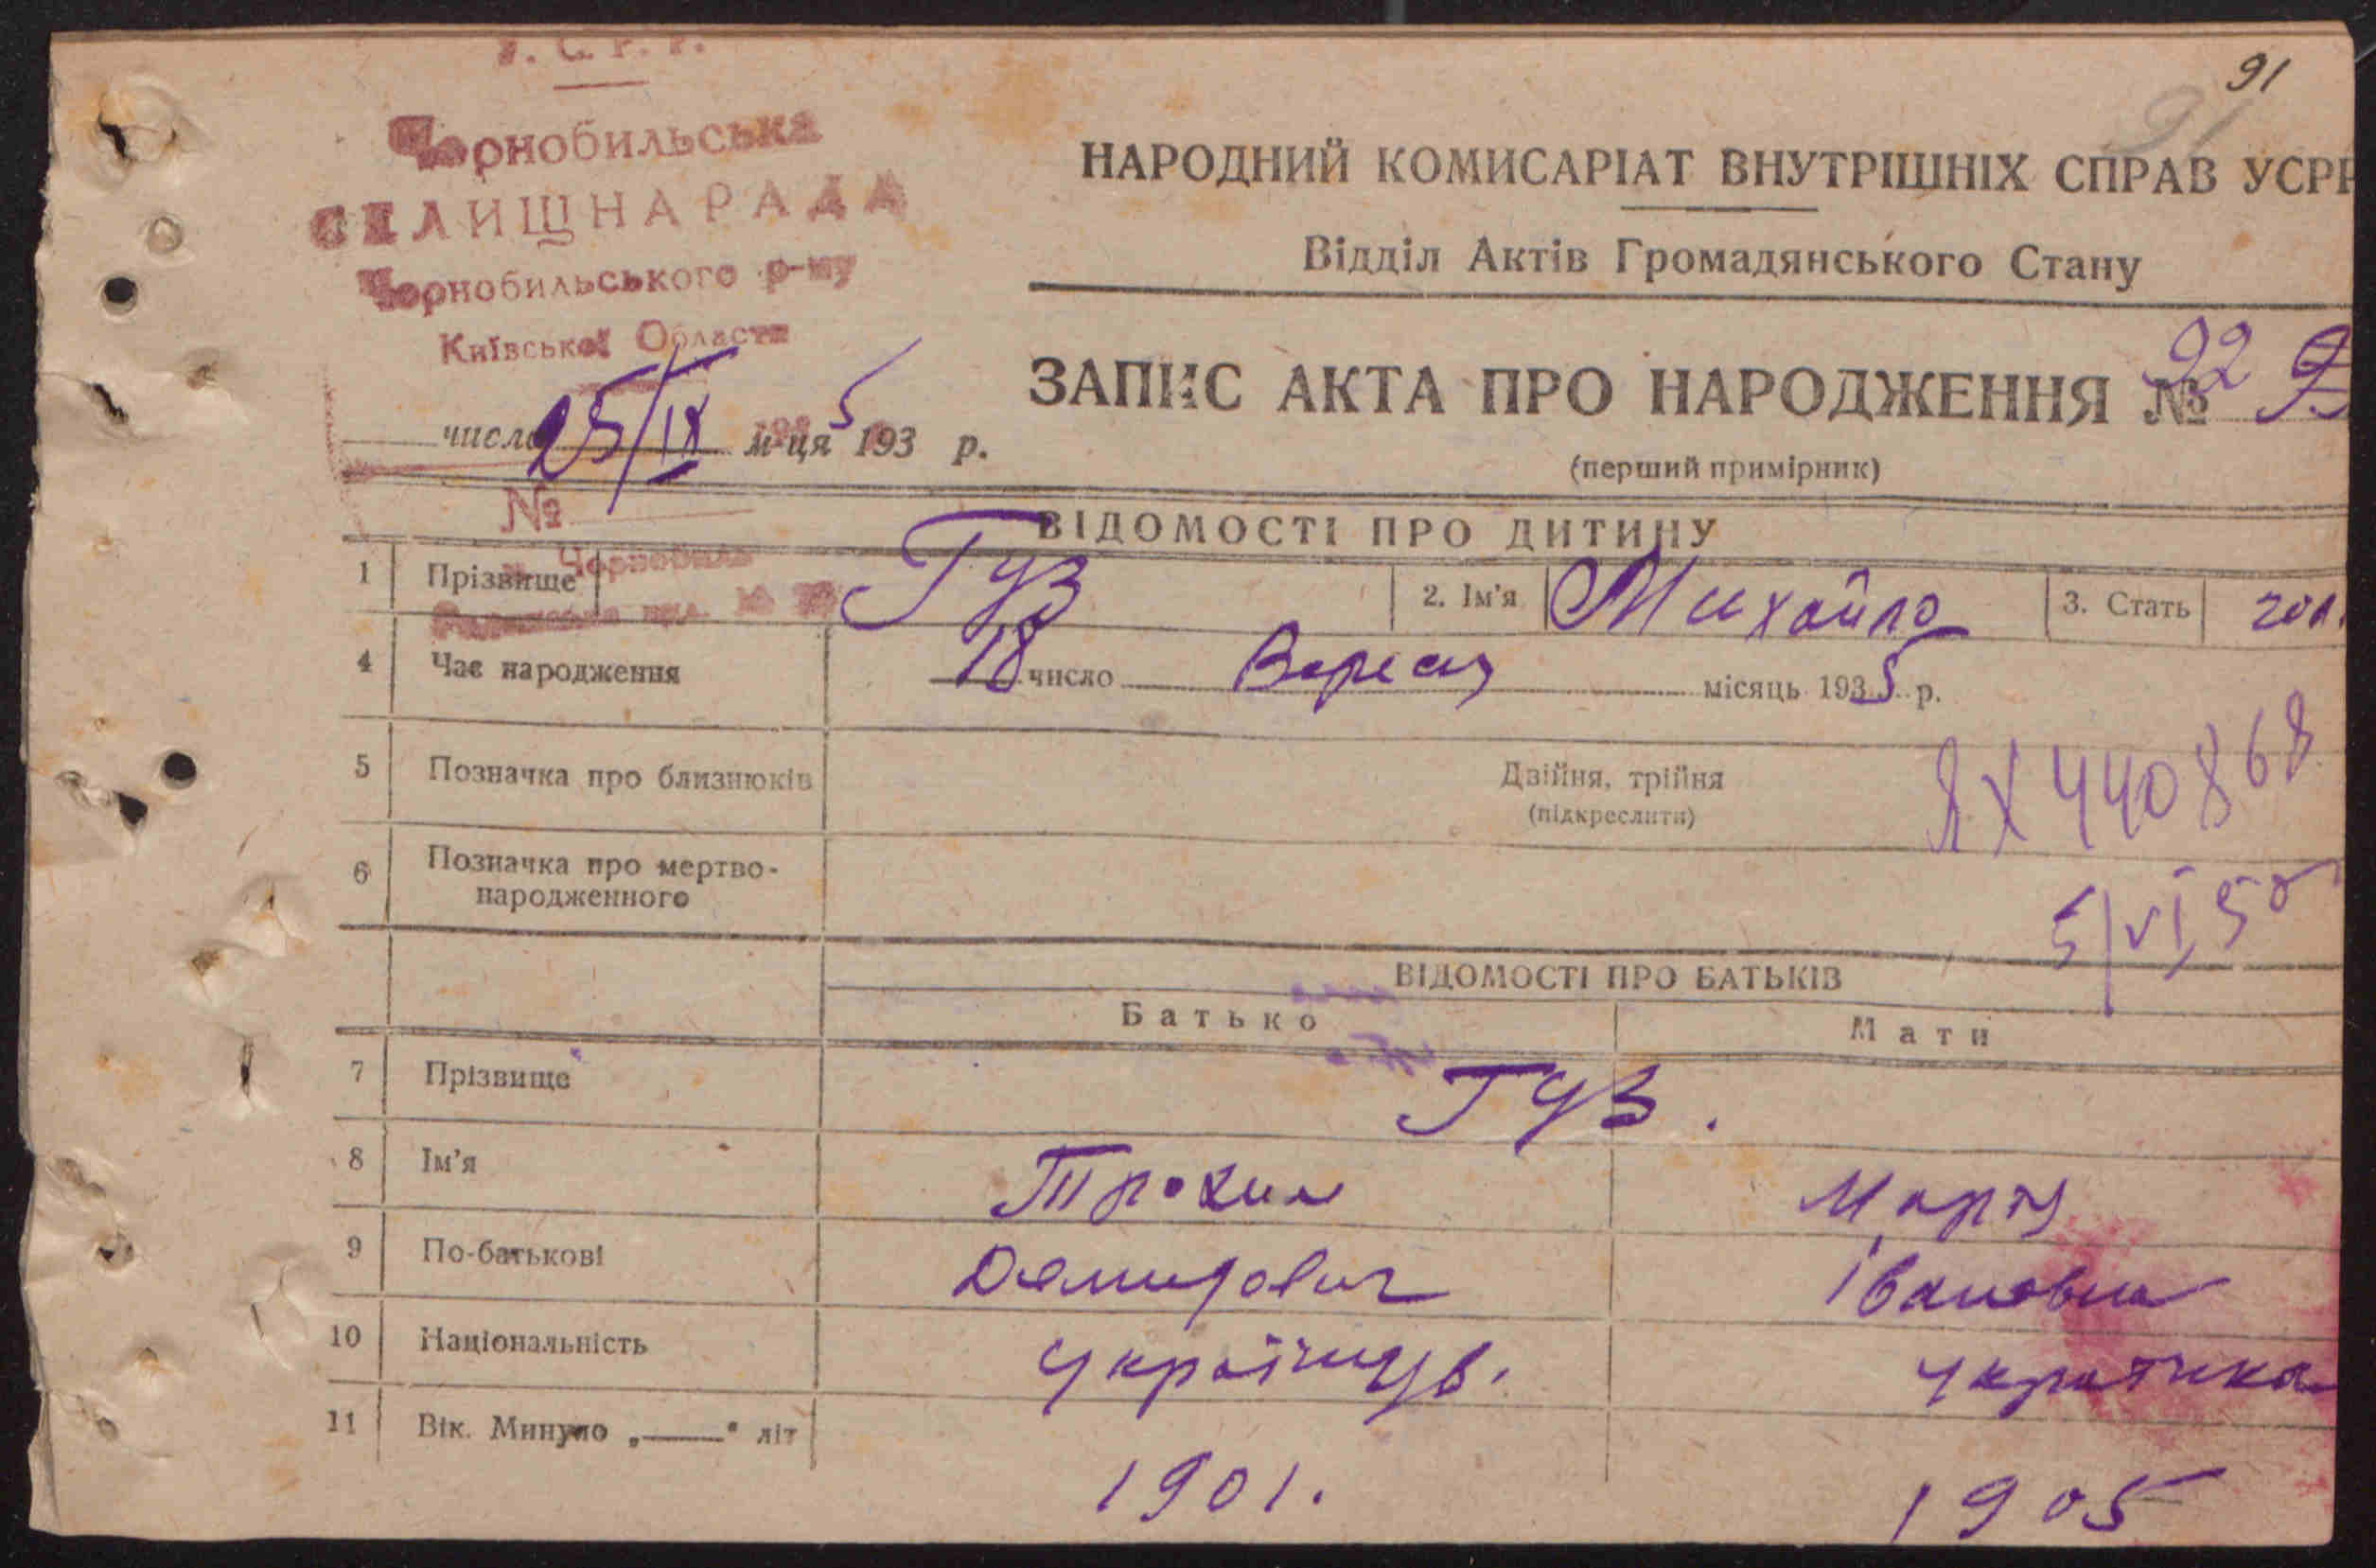 91
91
У. С. Р. Р.
Чорнобильська
СЕЛИЩНА РАДА
Чорнобильського р-ну
Київської Области
НАРОДНИЙ КОМИСАРІАТ ВНУТРІШНІХ СПРАВ УСРР
Відділ Актів Громадянського Стану
ЗАПИС АКТА ПРО НАРОДЖЕННЯ № 92
(перший примірник)
число 25/IX м-ця 1935 р.
№
ВІДОМОСТІ ПРО ДИТИНУ
Чорнобиль
1 Прізвище Гуз 2. Ім'я Михайло 3. Стать чол.
4 Час народження 18 число Вересня місяць 1935 р.
5 Позначка про близнюків Двійня, трійня
(підкреслити)
ЯХ 440868
6 Позначка про мертво-
народженного
5/VI, 50
ВІДОМОСТІ ПРО БАТЬКІВ
Батько Мати
7 Прізвище Гуз.
8 Ім'я Трохим Марта
9 По-батькові Демидович Івановна
10 Національність українць. українка
11 Вік. Минуло „—" літ
1901. 1905